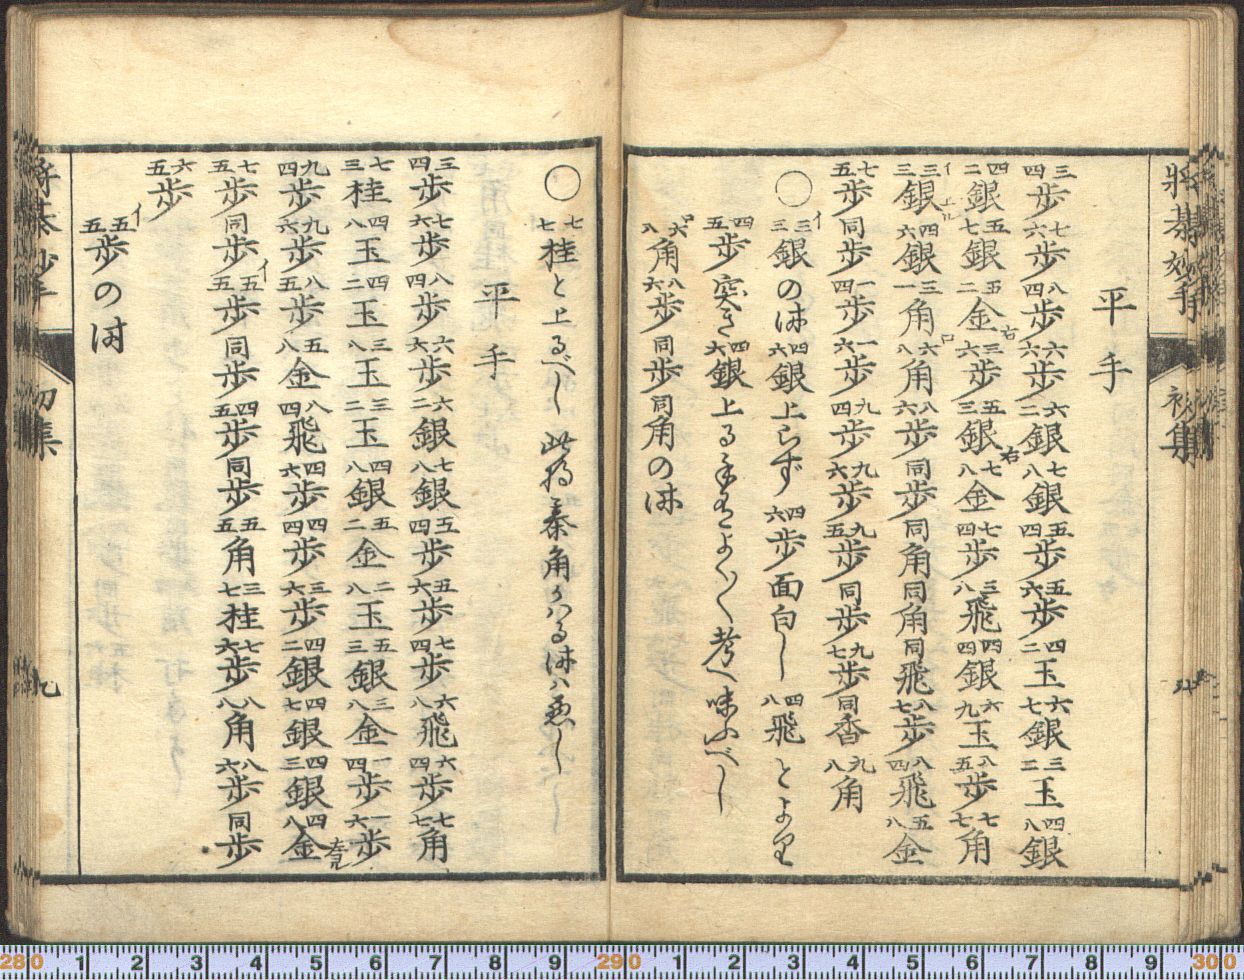 將棊妙手 初集
平手
三四歩七六歩八四歩六六歩六二銀七八銀五四歩五六歩四二玉六七銀三二玉四八銀
四二銀五七銀五二金右三六歩五三銀右七八金七四歩三八飛四四銀六九玉八五歩七七角
イ三三銀上ル四六銀三一角ロ六八角八六歩同歩同角同角同飛八七歩八四飛五八金
七五歩同歩一四歩一六歩九四歩九六歩九五歩同歩九七歩同香九八角
○イ三三銀の時四六銀上らず四六歩面白し四八飛とより
四五歩突き四六銀上る手有よく〱考へ味ふべし
ロ六八角八六歩同歩同角の時
○七七桂と上るべし此将棊角かハる時ハ悪しし
平手
三四歩七六歩八四歩六六歩六二銀七八銀五四歩五六歩七四歩六八飛六四歩七七角
七三桂四八玉四二玉三八玉三二玉四八銀五二金二八玉五三銀三八金一四歩一六歩
九四歩九六歩八五歩五八金八四飛四六歩四四歩三六歩四二銀四七銀四三銀四八金左ル
七五歩同歩イ五五歩同歩四五歩同歩五五角三七桂七六歩八八角八六歩同歩
六五歩
イ五五歩の時
將棊妙手 初集 九